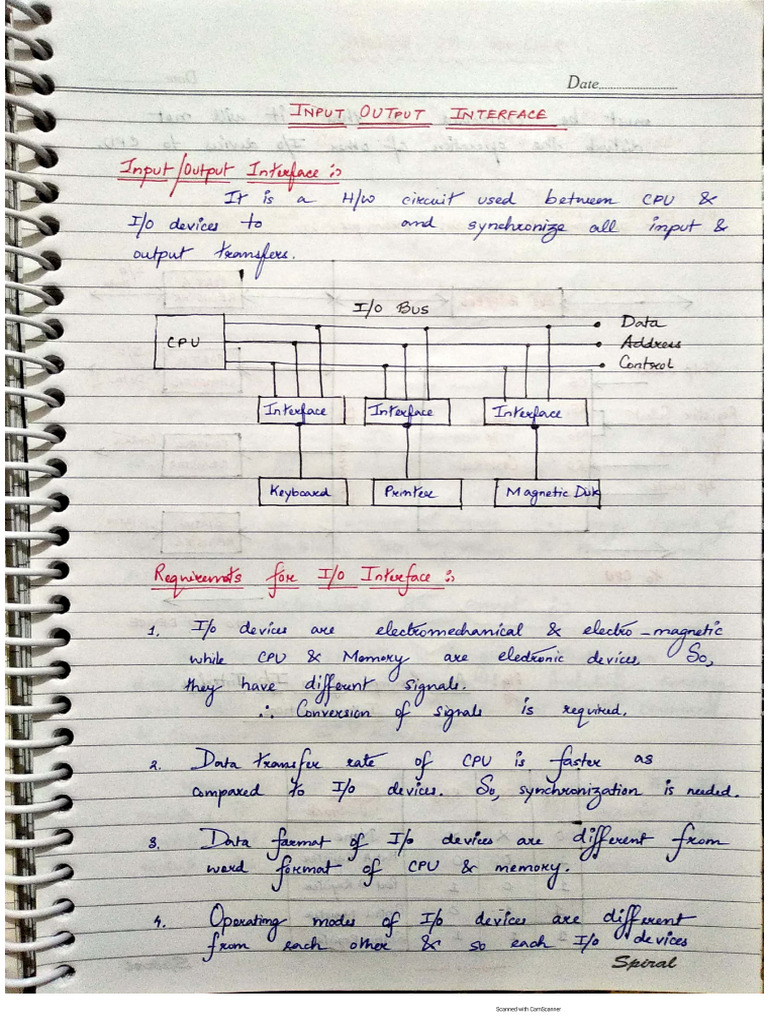 Date
INPUT OUTPUT INTERFACE
Input/Output Interface :
It is a H/W circuit used between CPU &
I/O devices to and synchronize all input &
output transfers.
I/O Bus
CPU
Data
Address
Control
Interface Interface Interface
Keyboard Printer Magnetic Disk
Requirements for I/O Interface :
1. I/O devices are electromechanical & electro-magnetic
while CPU & Memory are eledronic devices. So,
they have different signals.
∴ Conversion of signals is required.
2. Data transfer rate of CPU is faster as
compared to I/O devices. So, synchronization is needed.
3. Data format of I/O devices are different from
word format of CPU & memory.
4. Operating modes of I/O devices are different
from each other & so each I/O devices
Spiral
Scanned with CamScanner